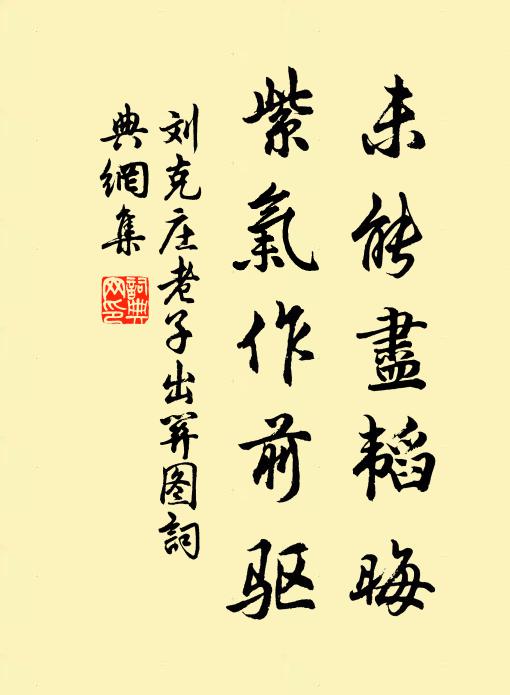 未能盡韬晦
紫氣作前驱
刘克庄老子出関图詞
典網集
詞典网印